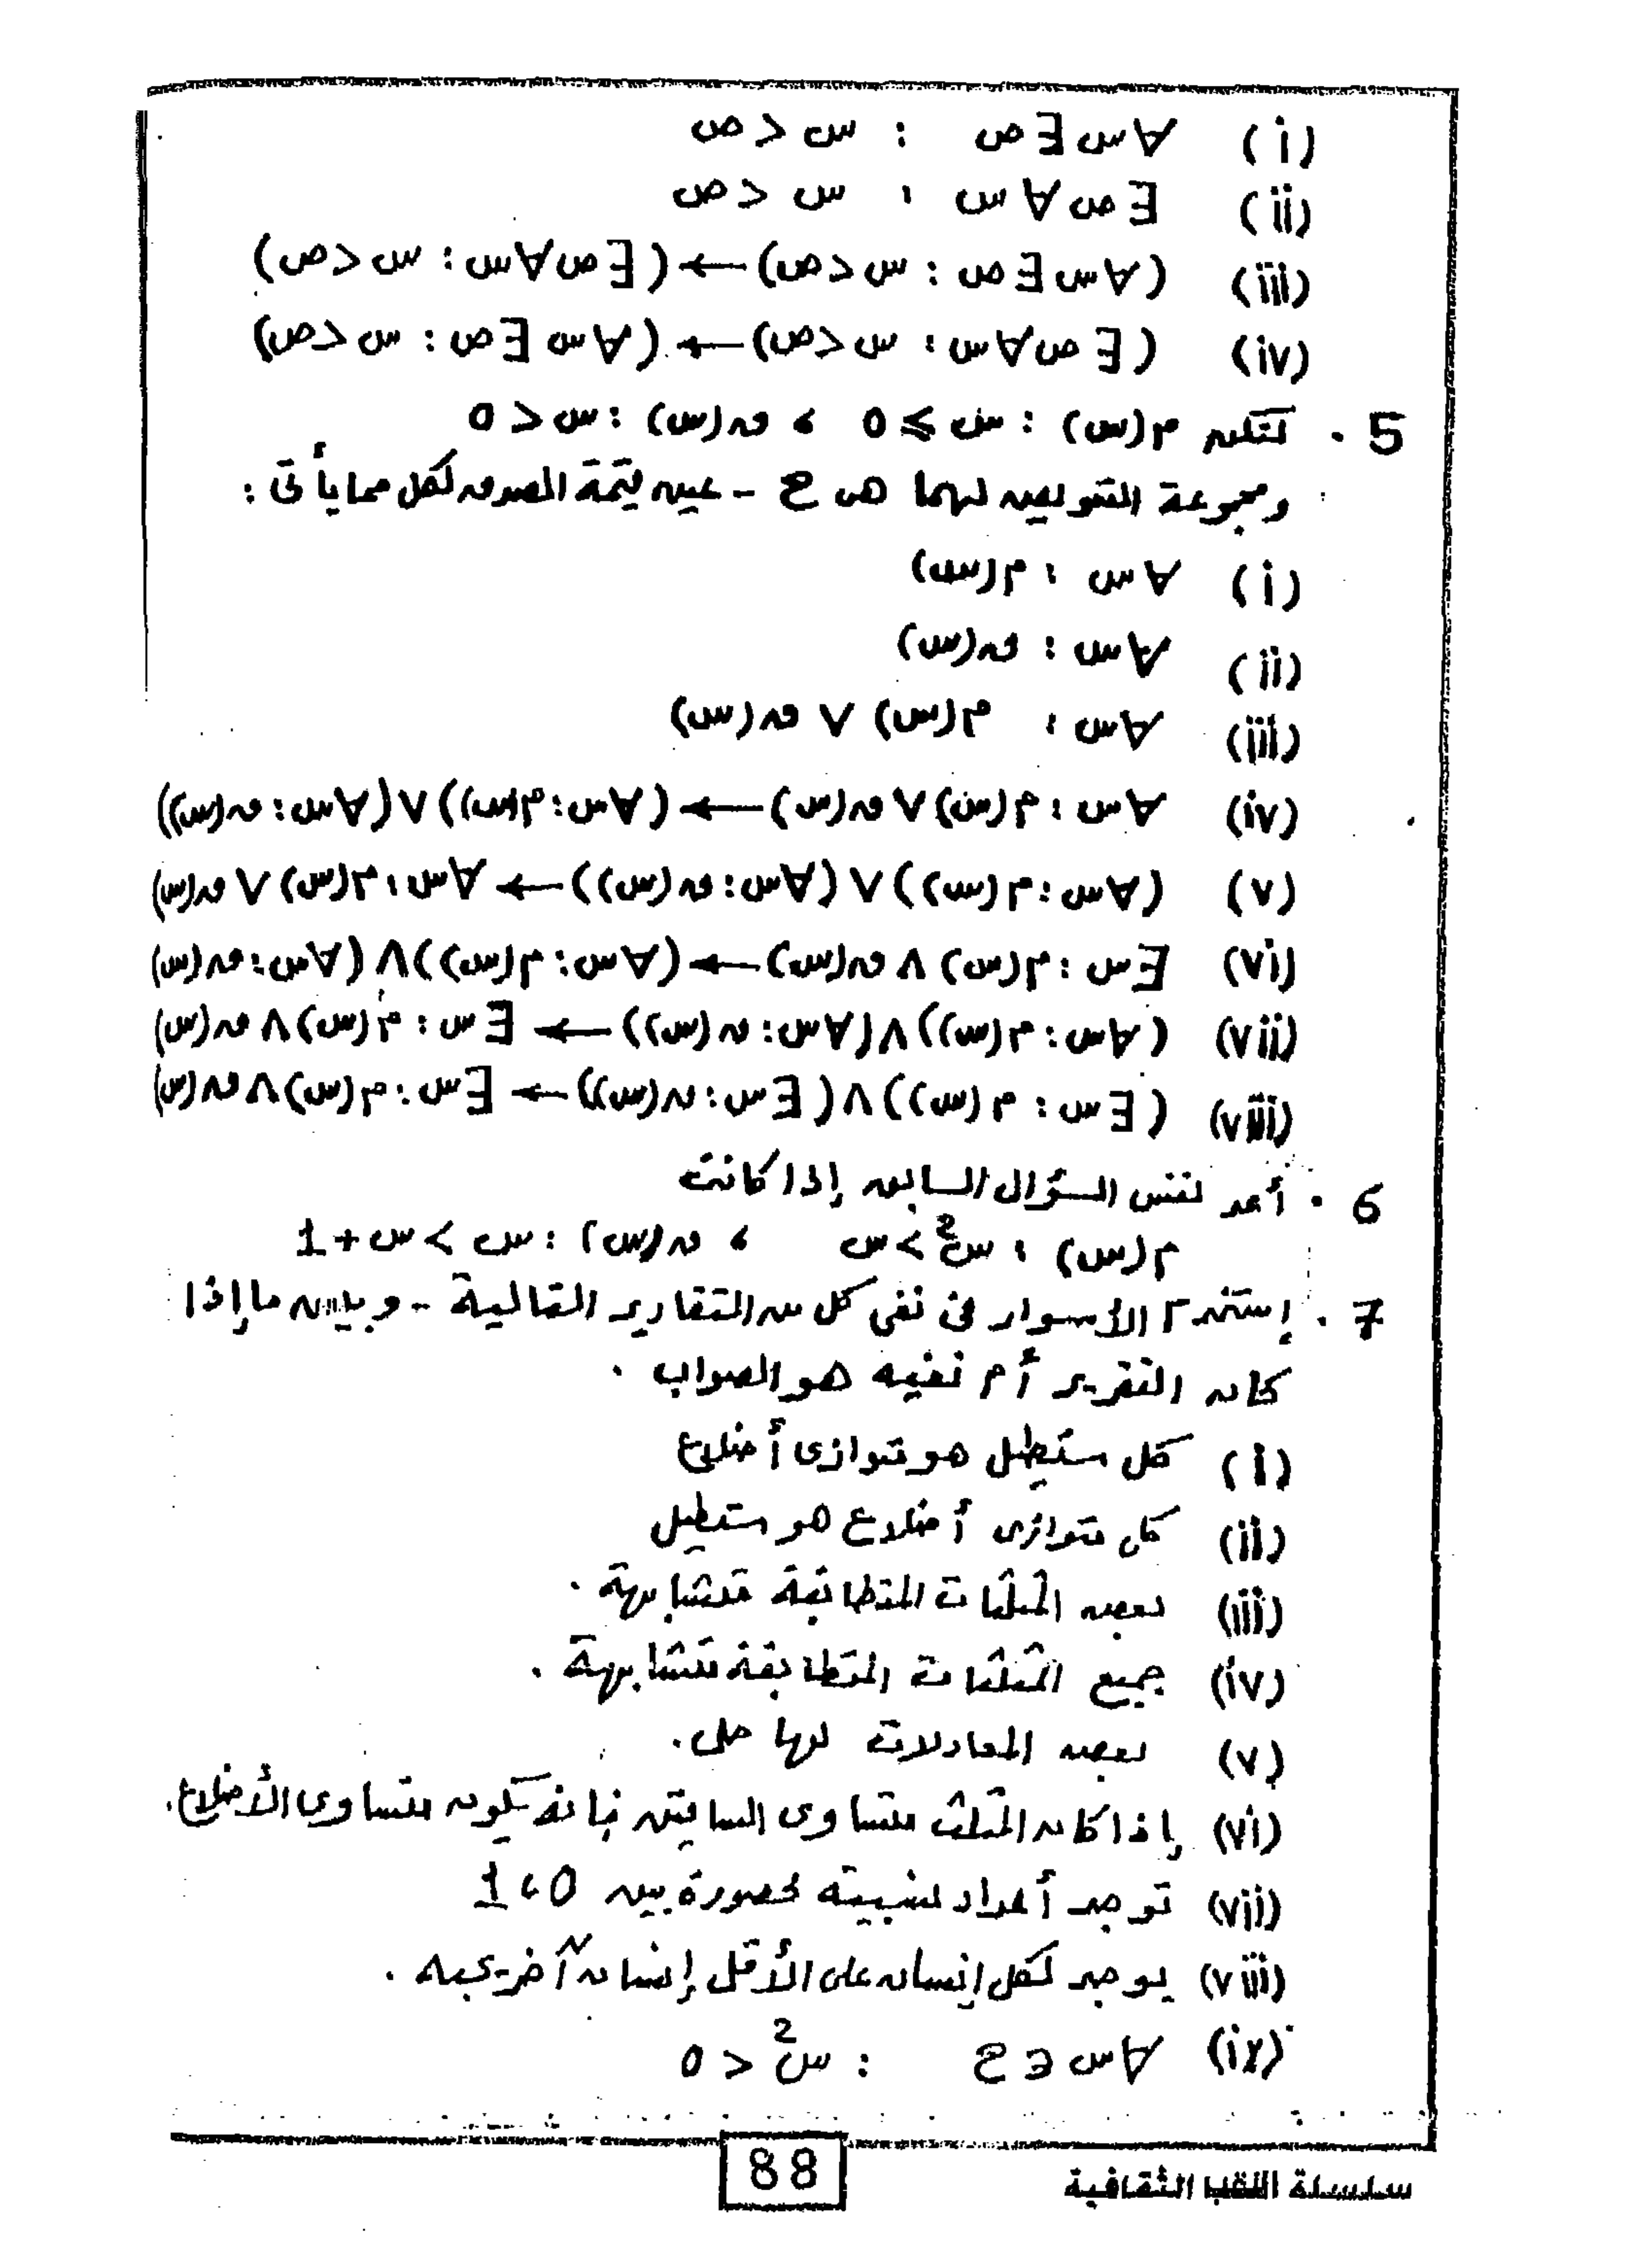 (i) ∀س ∃ص : س < ص
(ii) ∃ص ∀س : س < ص
(iii) (∀س ∃ص : س < ص) ← (∃ص ∀س : س < ص)
(iv) (∃ص ∀س : س < ص) ← (∀س ∃ص : س < ص)
5 . لتكن م(س) : س ⩽ 0 ، ن(س) : س < 0
ومجموعة التعويض لهما هى ح - عين قيمة الصدق لكل مما يأتى :
(i) ∀س : م(س)
(ii) ∀س : ن(س)
(iii) ∀س : م(س) ∨ ن(س)
(iv) ∀س : م(س) ∨ ن(س) ← (∀س : م(س)) ∨ (∀س : ن(س))
(v) (∀س : م(س)) ∨ (∀س : ن(س)) ← ∀س : م(س) ∨ ن(س)
(vi) ∃س : م(س) ∧ ن(س) ← (∀س : م(س)) ∧ (∀س : ن(س)
(vii) (∀س : م(س)) ∧ (∀س : ن(س)) ← ∃س : م(س) ∧ ن(س)
(viii) (∃س : م(س)) ∧ (∃س : ن(س)) ← ∃س : م(س) ∧ ن(س)
6 . أعد نفس السؤال السابق إذا كانت
م(س) : س² > س ، ن(س) : س > س + 1
7 . إستخدم الأسوار فى نفى كل من التقارير التالية - وبين ما إذا
كان التقرير أم نفيه هو الصواب .
(i) كل مستطيل هو متوازى أضلاع
(ii) كل متوازى أضلاع هو مستطيل
(iii) بعض المثلثات المتطابقة متشابهة .
(iv) جميع المثلثات المتطابقة متشابهة .
(v) بعض المعادلات لها حل .
(vi) إذا كان المثلث متساوى الساقين فإنه يكون متساوى الأضلاع .
(vii) توجد أعداد نسبية محصورة بين 0 ، 1
(viii) يوجد لكل إنسان على الأقل إنسان آخر يحبه .
(ix) ∀س ∈ ح : س² < 0
88
سلسلة النقب الثقافية